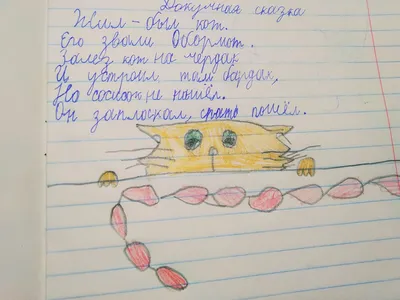 Докучная сказка
Жил-был кот.
Его звали Обормот.
Залез кот на чердак
И устроил там бардак,
Но сосисок не нашёл.
Он заплакал, спать пошёл.